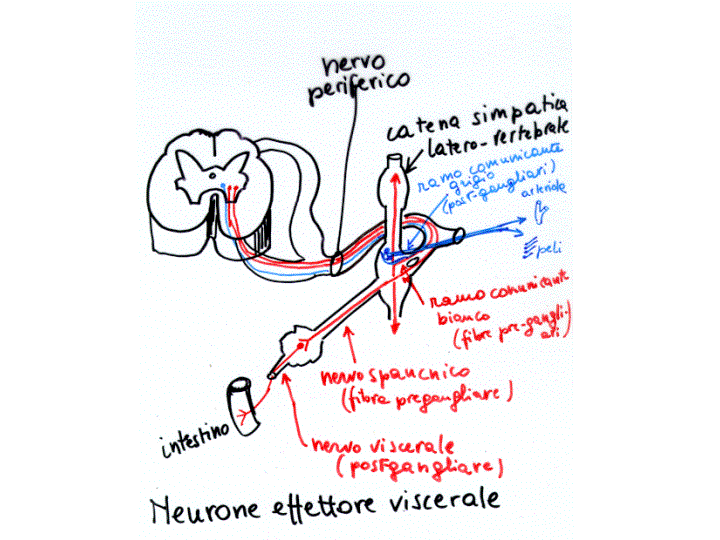 nervo
periferico
catena simpatica
latero-vertebrale
ramo comunicante
grigio
(post-gangliari)
arteriole
peli
ramo comunicante
bianco
(fibre pre-gangli-
ari)
nervo spancnico
(fibra pregangliare)
intestino
nervo viscerale
(postgangliare)
Neurone effettore viscerale